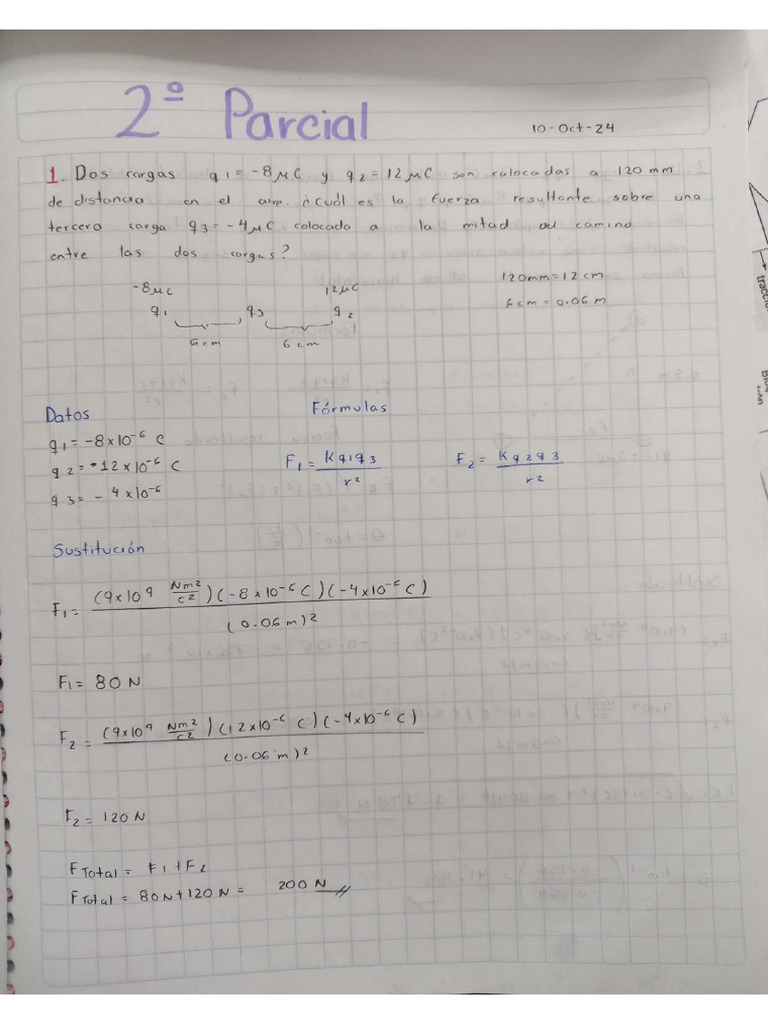 2º Parcial
10-Oct-24
1. Dos cargas q1=-8μC y q2=12μC son colocadas a 120 mm
de distancia en el aire. ¿Cuál es la fuerza resultante sobre una
tercera carga q3=-4μC colocada a la mitad del camino
entre las dos cargas?
120mm=12cm
6cm=0.06m
-8μC 12μC
q1 q3 q2
6cm 6cm
Datos Fórmulas
q1=-8x10^-6 C
q2=+12x10^-6 C
q3=-4x10^-6
F1= Kq1q3 / r^2 F2= Kq2q3 / r^2
Sustitución
F1= (9x10^9 Nm^2/c^2)(-8x10^-6 C)(-4x10^-6 C) / (0.06m)^2
F1=80N
F2= (9x10^9 Nm^2/c^2)(12x10^-6 C)(-4x10^-6 C) / (0.06m)^2
F2=120N
FTotal= F1+F2
FTotal= 80N+120N= 200N